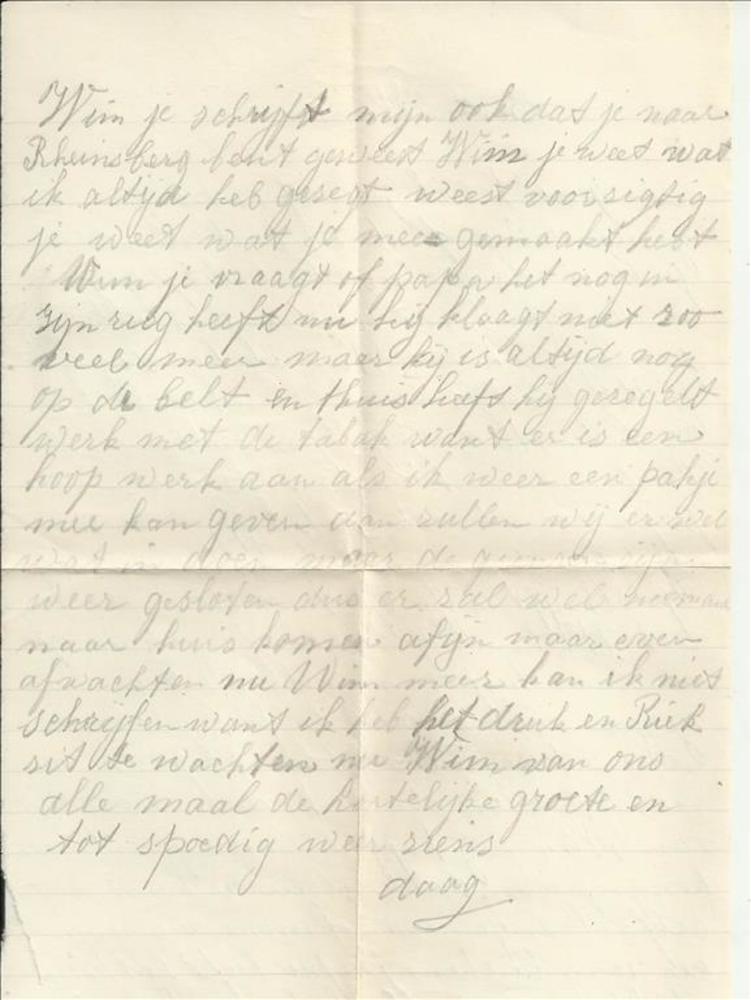 Wim je schrijft mijn ook dat je naar
Rheinsberg bent geweest Wim je weet wat
ik altijd heb gesegt weest voorsigtig
je weet wat je mee gemaakt hebt
Wim je vraagt of papa het nog in
zijn rug heeft nu hij klaagt niet zoo
veel meer maar hij is altijd nog
op de belt en thuis heeft hij geregelt
werk met de tabak want er is een
hoop werk aan als ik weer een pakje
mee kan geven dan zullen wij er wel
wat in doen maar de zijn
weer gesloten dus er zal wel niemand
naar huis komen afijn maar even
afwachten nu Wim meer kan ik niet
schrijfen want ik heb het druk en Riek
sit te wachten nu Wim van ons
alle maal de hartelijke groete en
tot spoedig weer ziens
daag